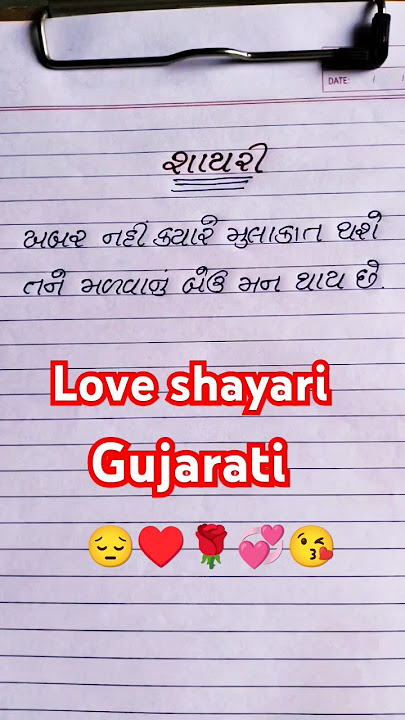 DATE: / /
શાયરી
ખબર નહીં ક્યારે મુલાકાત થશે
તને મળવાનું બઉ મન થાય છે.
Love shayari
Gujarati
😔❤️🌹💞😘